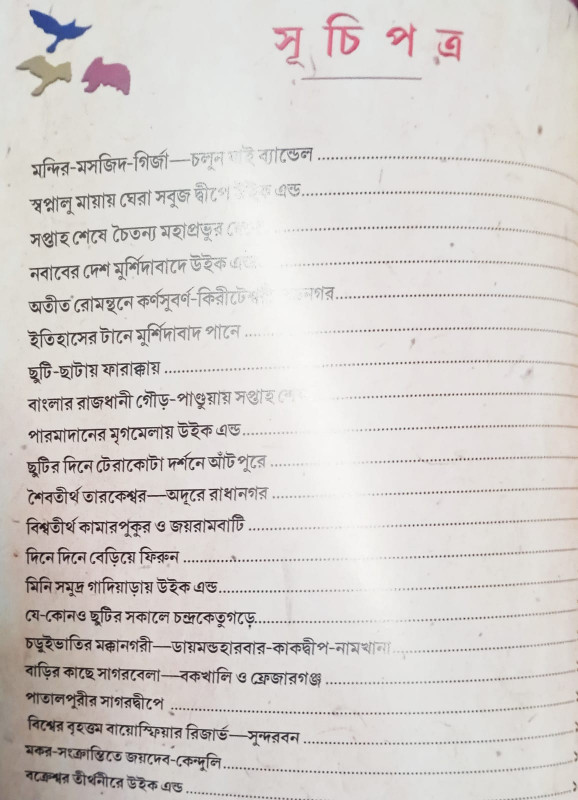 সূচিপত্র
মন্দির-মসজিদ-গির্জা—চলুন যাই ব্যাণ্ডেল
স্বপ্নালু মায়ায় ঘেরা সবুজ দ্বীপে উইক এণ্ড
সপ্তাহ শেষে চৈতন্য মহাপ্রভুর
নবাবের দেশ মুর্শিদাবাদে উইক এণ্ড
অতীত রোমন্থনে কর্ণসুবর্ণ-কিরীটেশ্বরী
ইতিহাসের টানে মুর্শিদাবাদ পানে
ছুটি-ছাটায় ফারাক্কায়
বাংলার রাজধানী গৌড়-পাণ্ডুয়ায় সপ্তাহ শেষে
পারমাদানের মৃগমেলায় উইক এণ্ড
ছুটির দিনে টেরাকোটা দর্শনে আঁটপুরে
শৈবতীর্থ তারকেশ্বর—অদূরে রাধানগর
বিশ্বতীর্থ কামারপুকুর ও জয়রামবাটি
দিনে দিনে বেড়িয়ে ফিরুন
মিনি সমুদ্র গাদিয়াড়ায় উইক এণ্ড
যে-কোনও ছুটির সকালে চন্দ্রকেতুগড়ে
চড়ুইভাতির মক্কানগরী—ডায়মন্ডহারবার-কাকদ্বীপ-নামখানা
বাড়ির কাছে সাগরবেলা—বকখালি ও ফ্রেজারগঞ্জ
পাতালপুরীর সাগরদ্বীপে
বিশ্বের বৃহত্তম বায়োস্ফিয়ার রিজার্ভ—সুন্দরবন
মকর-সংক্রান্তিতে জয়দেব-কেন্দুলি
বক্রেশ্বর তীর্থনীরে উইক এণ্ড